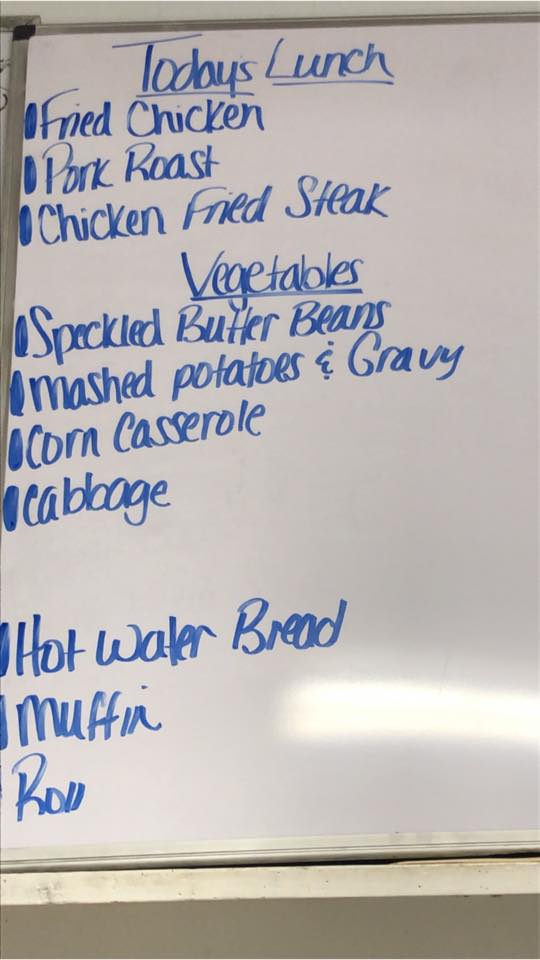 Today's Lunch
Fried Chicken
Pork Roast
Chicken Fried Steak
Vegetables
Speckled Butter Beans
mashed potatoes & Gravy
Corn Casserole
Cabbage
Hot Water Bread
Muffin
Roll